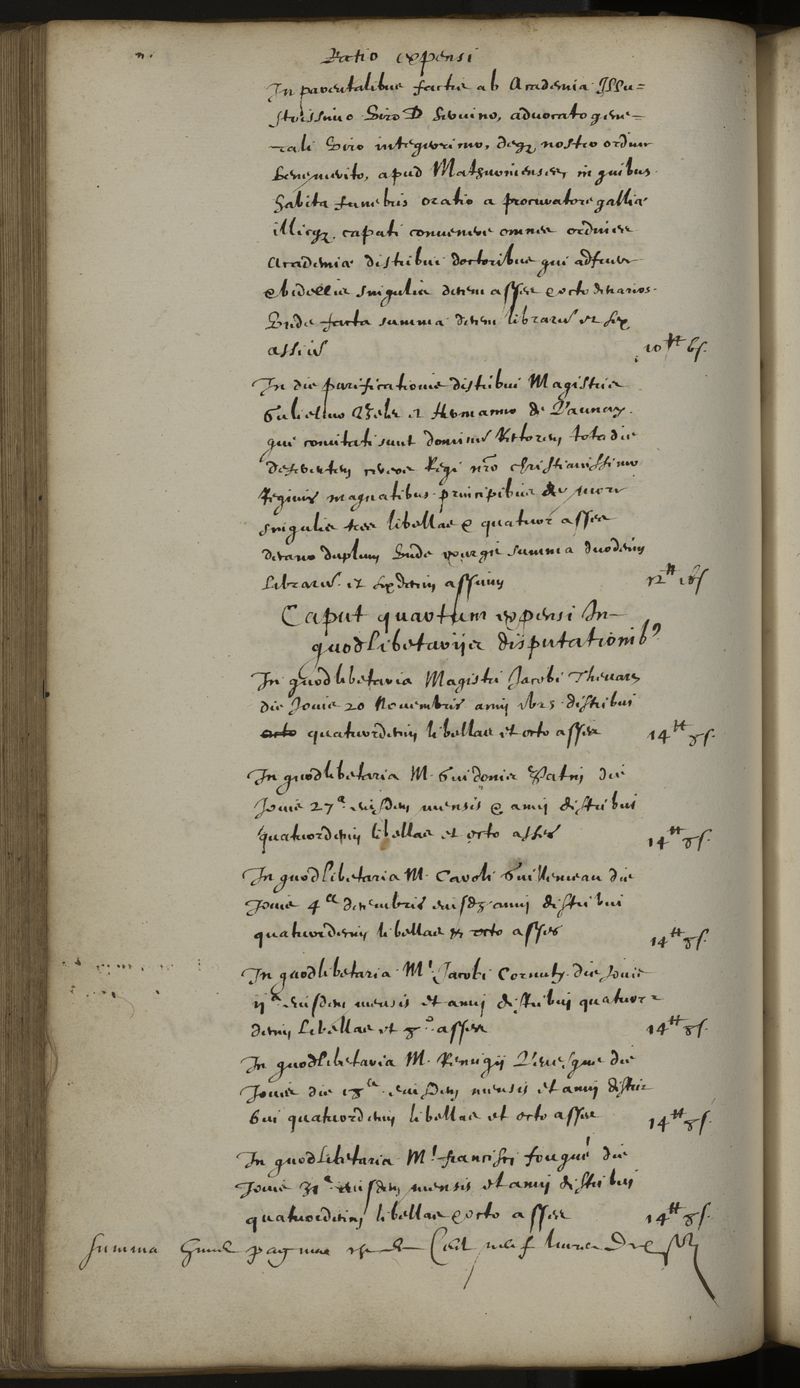 Ratio expensi
In parentalibus factis ab Academia Illu=
strissimo Viro D Servino, advocato gene=
rali Viro integerrimo, deq3 nostro ordine
benemerito, apud Mathurinenses, in quibus
habita funebris oratio a procuratore galliæ
illicq3. capati convenere omnes ordines
Academiæ distribui doctoribus qui adfuere
& bidellis singulis denem asses & octo denarios.
Unde facta summa decem librarum et sex
assium 10 tt 6 s.
In die purificationis distribui Magistris
Gulielmo et Hermanno de Launay.
qui comitati sunt dominum Rectorem tota die
deferentem cereos Regi nro christianissimo
Reginis magnatibus principibus de more
singulis tres libellas & quatuor asses
decano duplum Unde exurgit summa duodecim
librarum et octodecim assium 12 tt 18 s
Caput quartum expensi In
quodlibetarijs disputationib9
In quodlibetaria Magistri Jacobi Thevart
die Jovis 20 Novembris anni 1625 distribui
quatuordecim libellas et octo asses 14 tt 8 s.
In quodlibetaria M. Guidonis Patin die
Jovis 27a eiusdem mensis & anni distribui
quatuordecim libellas et octo asses 14 tt 8 s.
In quodlibetaria M. Caroli Guillemeau die
Jovis 4a decembris eiusdem anni distribui
quatuordecim libellas & octo asses 14 tt 8 s.
In quodlibetaria Mri Jacobi Cornuty die Jovis
11a eiusdem mensis et anni distribui quatuor=
decim libellas et 8o asses 14 tt 8 s.
In quodlibetaria M. Remigij die
Jovis die 18a eiusdem mensis et anni distri=
bui quatuordecim libellas et octo asses 14 tt 8 s.
In quodlibetaria Mri francisci fouqué die
Jovis 31a eiusdem mensis et anni distribui
quatuordecim libellas & octo asses 14 tt 8 s.
Summa huius paginæ est Cent neuf livres